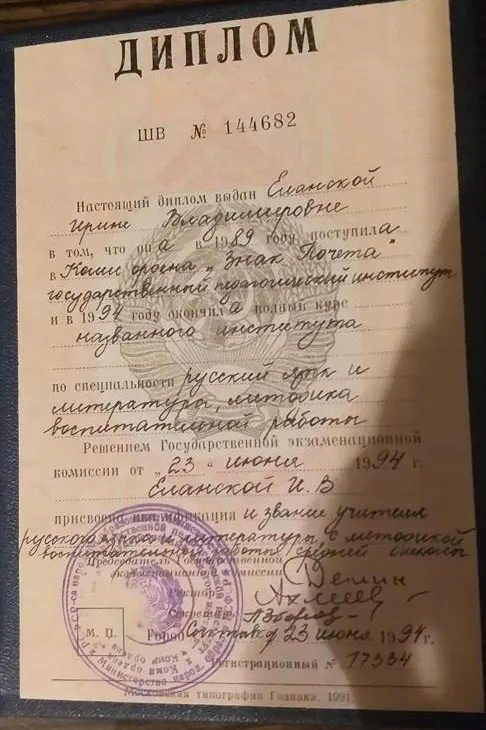 ДИПЛОМ
ШВ № 144682
Настоящий диплом выдан Еланской
Ирине Владимировне
в том, что она в 1989 году поступила
в Коми ордена „Знак Почета"
государственный педагогический институт
и в 1994 году окончила полный курс
названного института
по специальности русский язык и
литература, методика
воспитательной работы
Решением Государственной экзаменационной
комиссии от „23" июня 1994 г.
Еланской И.В
присвоена квалификация и звание учителя
русского языка и литературы, с методикой
воспитательной работы средней школы
Председатель Государственной
экзаменационной комиссии
Ректор
Секретарь
М. П.
Город 23 июня 1994 г.
Регистрационный № 17334
Московская типография Гознака. 1991.